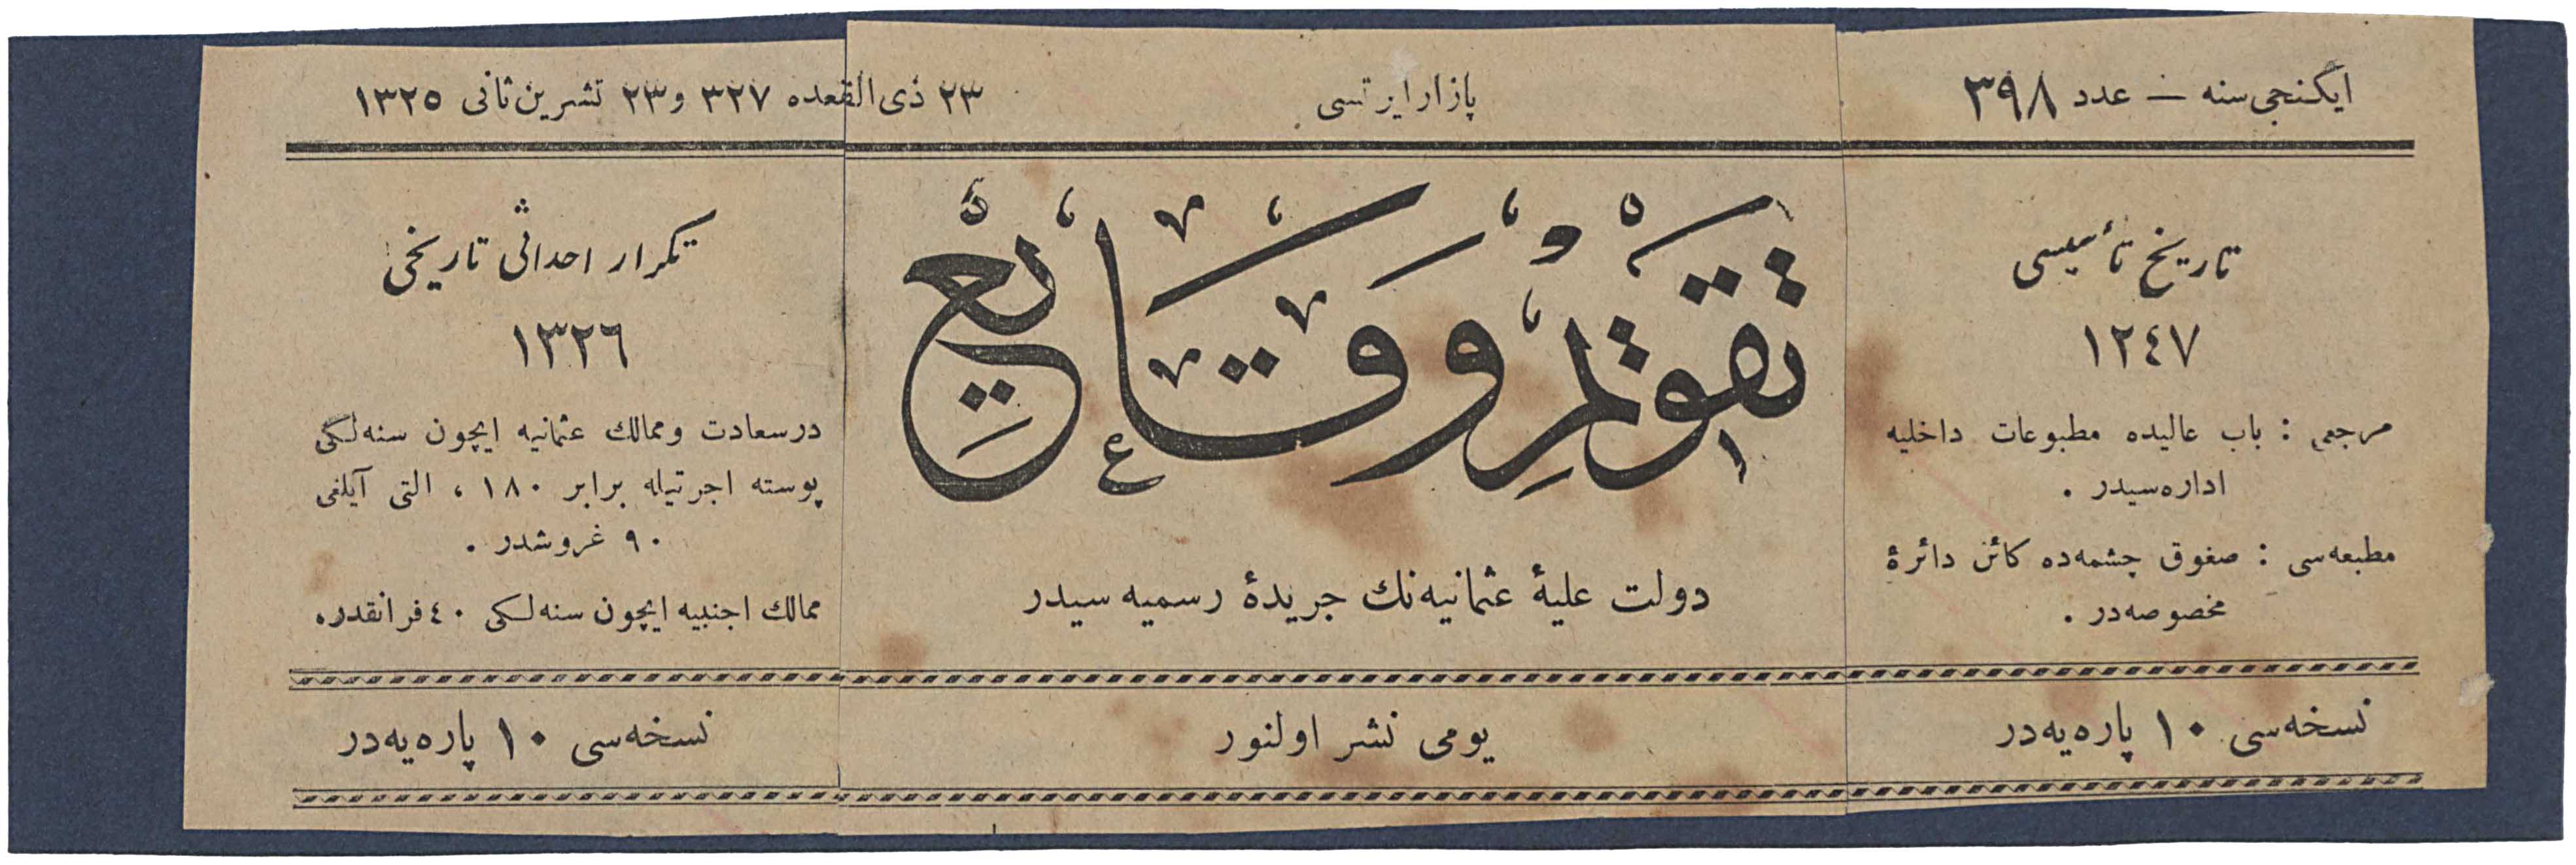 ایکنجی سنه — عدد ٣٩٨
پازار ایرتسی
٢٣ ذی القعده ٣٢٧ و ٢٣ تشرین ثانی ١٣٢٥
تاریخ تأسیسی
١٢٤٧
مرجعی : باب عالیده مطبوعات داخلیه
اداره سیدر .
مطبعه سی : صغوق چشمه ده کائن دائرهٔ
مخصوصه در .
تقویم وقایع
دولت علیهٔ عثمانیه نك جریدهٔ رسمیه سیدر
تکرار احداثی تاریخی
١٣٢٦
درسعادت وممالك عثمانیه ایچون سنه لكی
پوسته اجرتیله برابر ١٨٠ ، التی آیلغی
٩٠ غروشدر .
ممالك اجنبیه ایچون سنه لكی ٤٠ فرانقدر.
نسخه سی ١٠ پاره یه در
یومی نشر اولنور
نسخه سی ١٠ پاره یه در